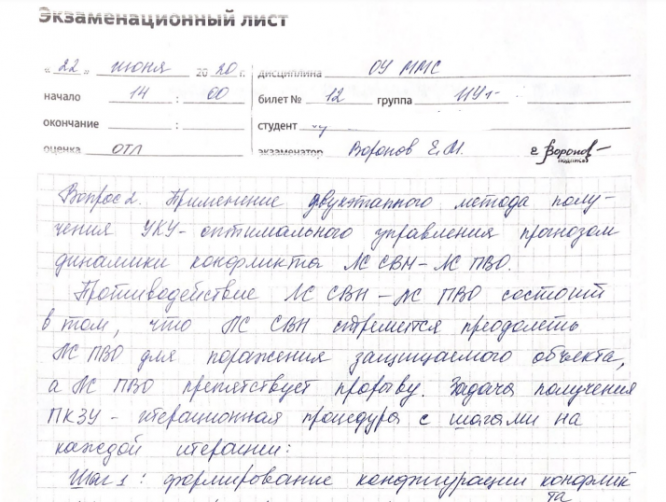 Экзаменационный лист
« 22 » июня 20 20 г. дисциплина ОУ ММС
начало 14 : 00 билет № 12 группа ИУ1-
окончание : студент
оценка отл экзаменатор Воронов Е.М. Воронов
подпись
Вопрос 2. Применение двухэтапного метода полу-
чения УКУ-оптимального управления прогнозом
динамики конфликта ЛС СВН-ЛС ПВО.
Противодействие ЛС СВН - ЛС ПВО состоит
в том, что ЛС СВН стремется преодолеть
ЛС ПВО для поражения защищаемого объекта,
а ЛС ПВО препятствует прорыву. Задача получения
ПКЗУ - итерационная процедура с шагами на
каждой итерации:
Шаг 1: формирование конфигурации конфлик
та